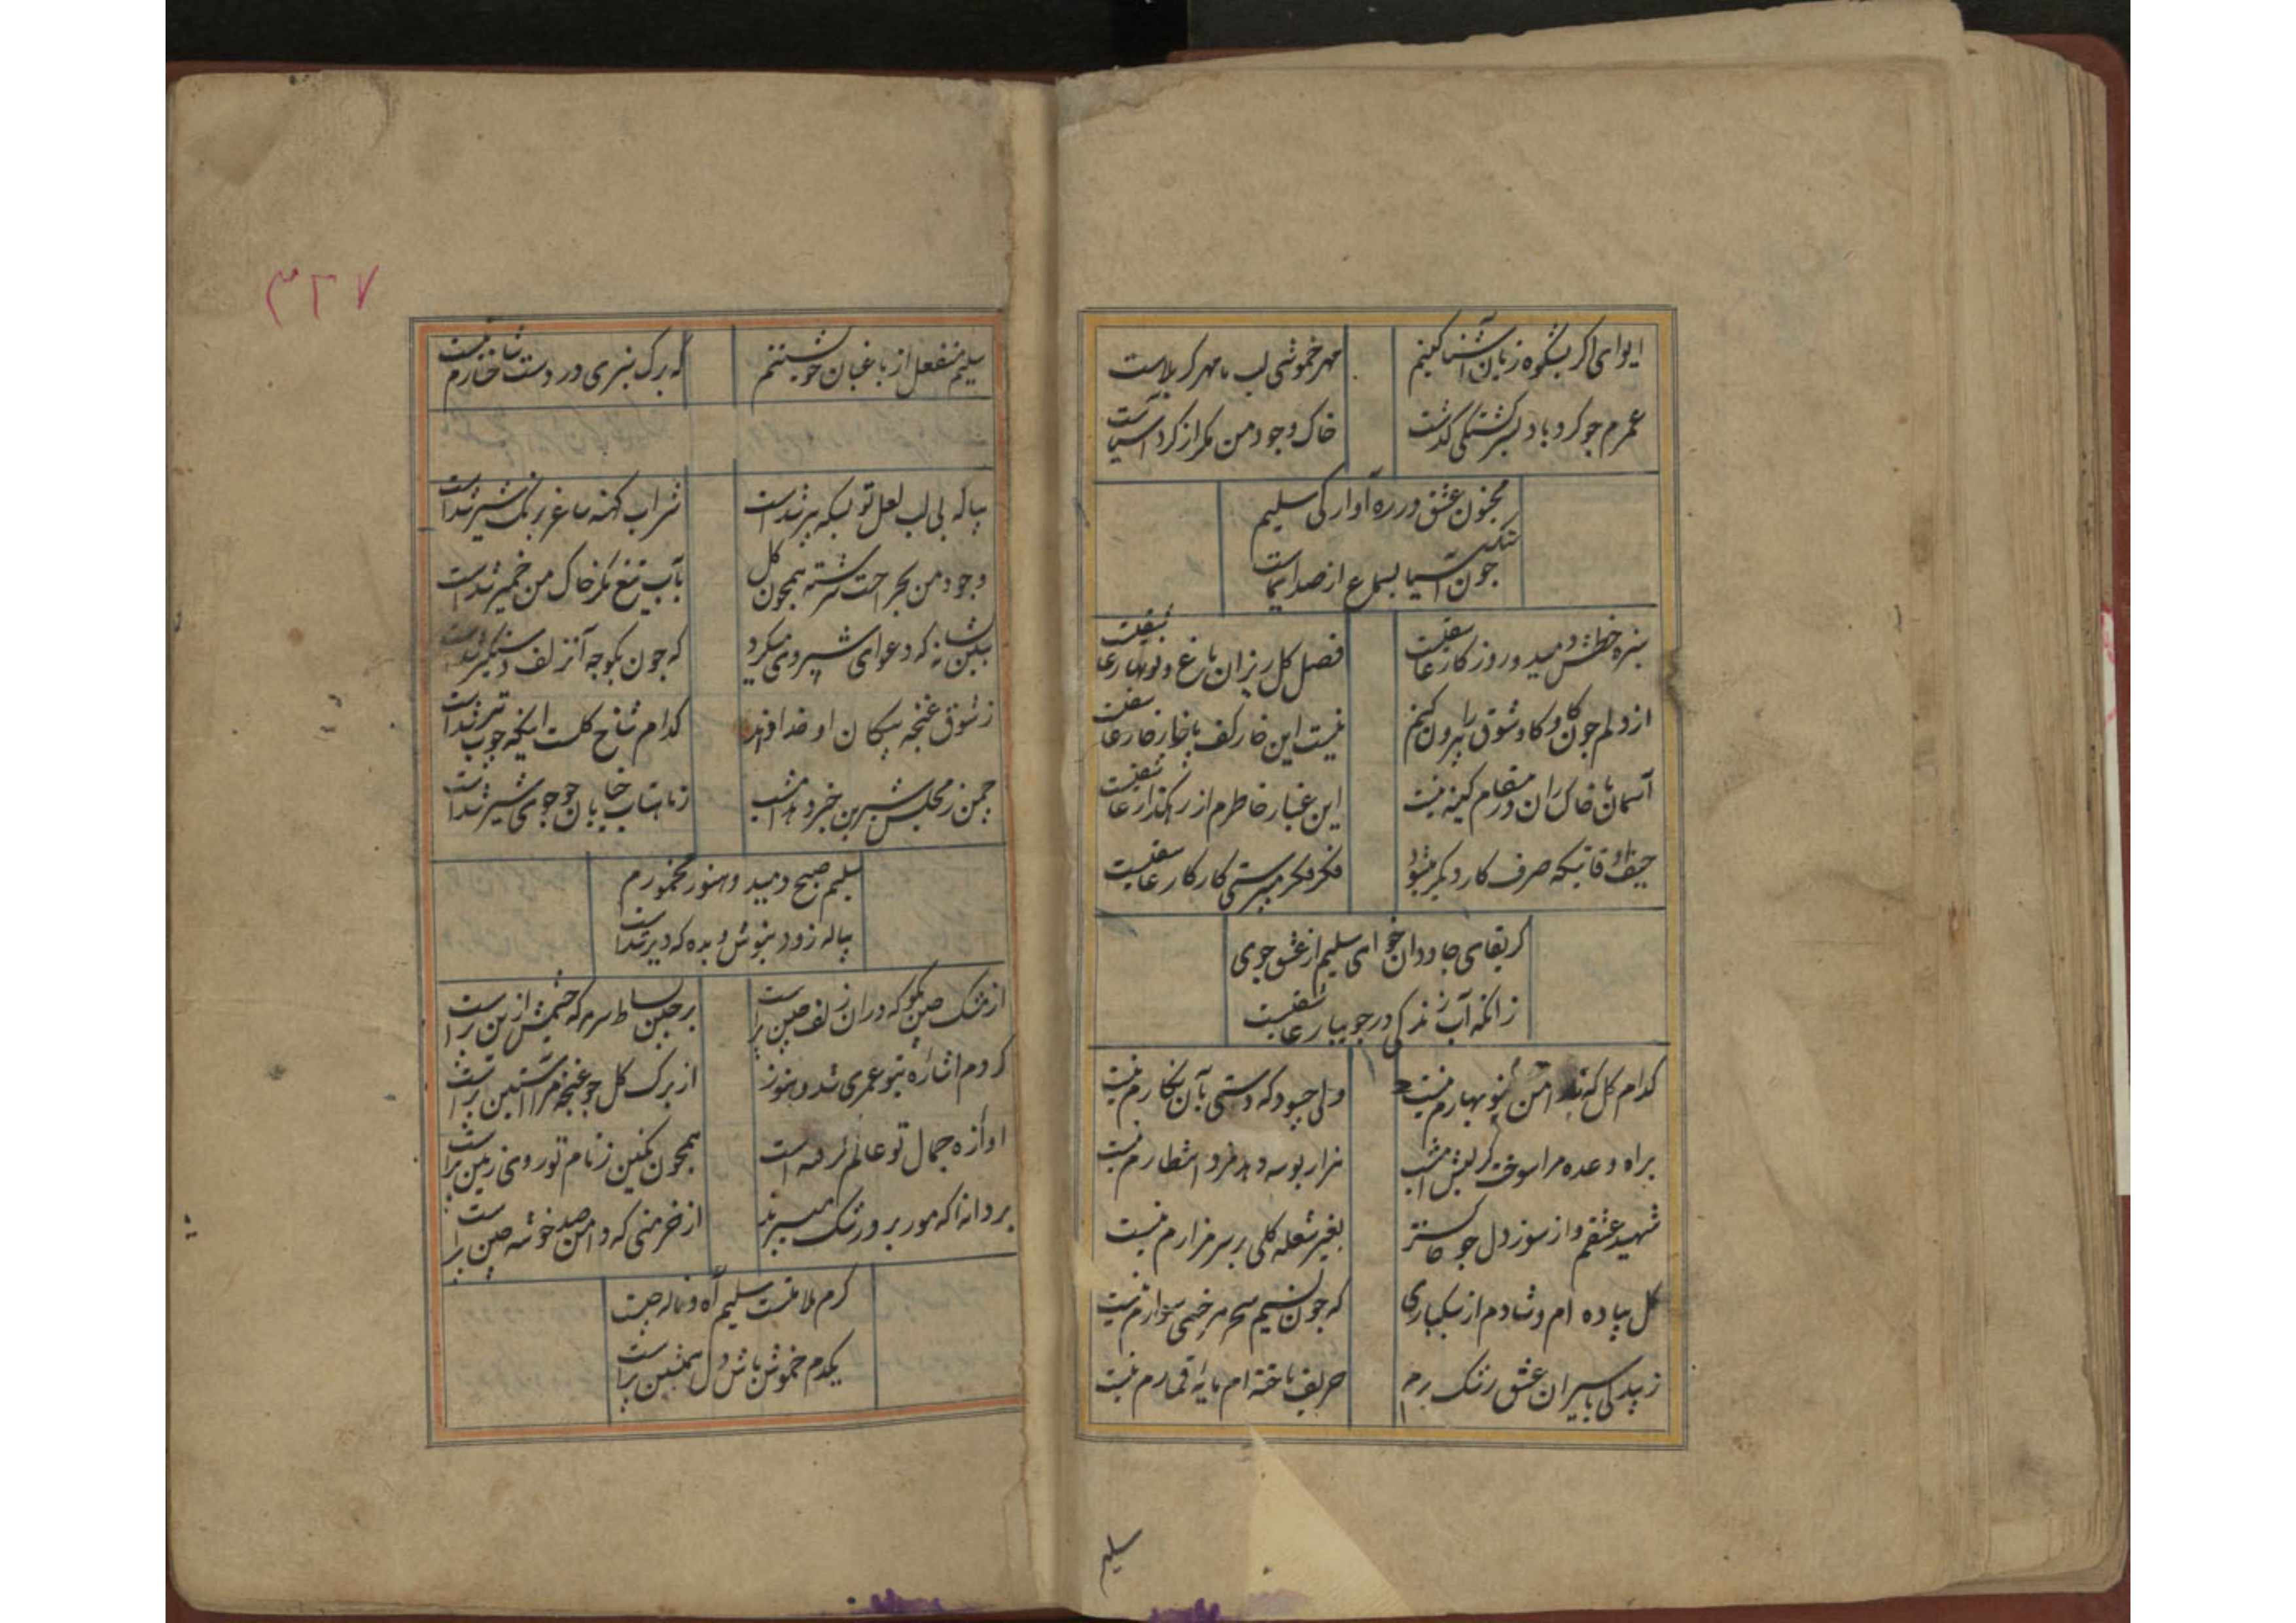 ایوای اگر بشکوه زبان آشنا کنیم
مهر خموشی لب ما مهر کربلاست
عمرم چو کردباد بسرکشتکی کذشت
خاک وجود من مکر از کرد آسیاست
مجنون عشق در ره آوارکی سلیم
چون آسیا بسماع از صدای
سبزه خطش دمید و روزکار عاشقیست
فصل کل ریزان باغ و نوبهار عاشقیست
از دلم چون کاوکاو شوق را بیرون کنم
نیست این خار کف پا خار خار عاشقیست
آسمان با خاکساران در مقام کینه نیست
این غبار خاطرم از رهکذار عاشقیست
حیف اوقاتیکه صرف کار دیکر میشود
فکر فکر می پرستی کار کار عاشقیست
کر بقای جاودان خواهی سلیم از عشق جوی
زانکه آب زندکی در جویبار عاشقیست
کدام کل که بدامن ز نوبهارم نیست
ولی چه سود که دستی بآن نکارم نیست
براه وعده مرا سوخت کر لبش امشب
هزار بوسه دهد مزد انتظارم نیست
شهید عشقم و از سوز دل چو خاکستر
بغیر شعله کلی بر سر مزارم نیست
کل پیاده ام و شادم از سبکباری
که چون نسیم سحر هر خسی سوارم نیست
با اسیران عشق رنک
حریف باخته ام مایه قمارم نیست
سلیم
۳۲۷
سلیم منفعل از باغبان خویشتنم
که برک سبزی در دست شاخسارم نیست
بیا که بی لب لعل تو بسکه پیر شداست
شراب کهنه ساغر برنک شیر شداست
وجود من بجراحت سرشته همچون کل
بآب تیغ مکر خاک من خمیر شداست
ببین بشانه که دعوای شبروی میکرد
که چون بکوچه آن زلف دستکیر شداست
ز شوق غنچه پیکان او خدا داند
کدام شاخ کلست اینکه چوب تیر شداست
چمن ز مجلس شیرین خبر دهد امشب
ز ماهتاب خیابان چو جوی شیر شداست
سلیم صبح دمید و هنوز مخمورم
پیاله زود بنوش و بده که دیر شداست
از مشک چین مکو که در آن زلف چین پر است
بر چین بساط سرمه که چشمش ازین پر است
کردم اشاره بتو عمری شد و هنوز
از برک کل چو غنچه مرا آستین پر است
اوازه جمال تو عالم کرفته است
همچون نکین ز نام تو روی زمین پر است
بر دانه که مور برد رشک میبرند
از خرمنی که دامن صد خوشه چین پر است
کرم ملامتست سلیم آه و ناله چیست
یکدم خموش باش دل همنشین پر است